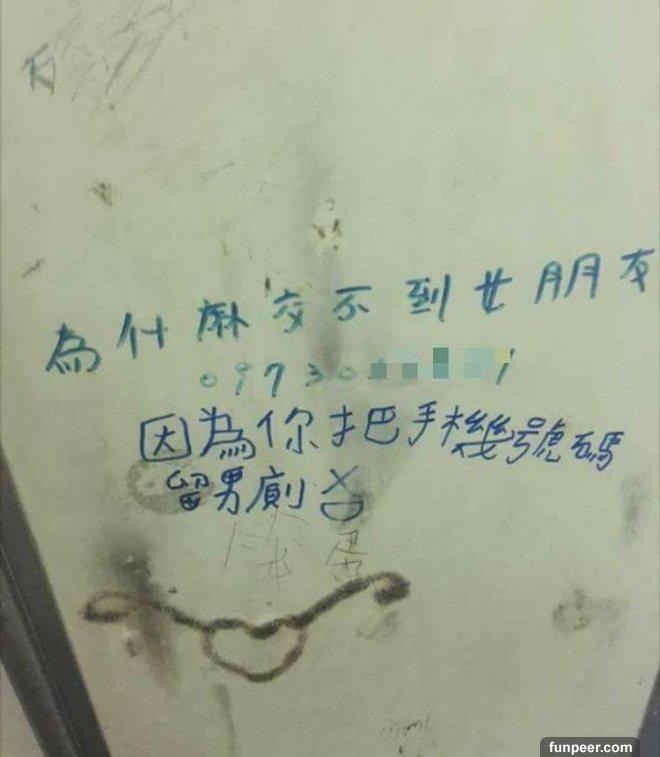 為什麻交不到女朋友
09730 1
因為你把手機號碼
留男廁 XD
funpeer.com